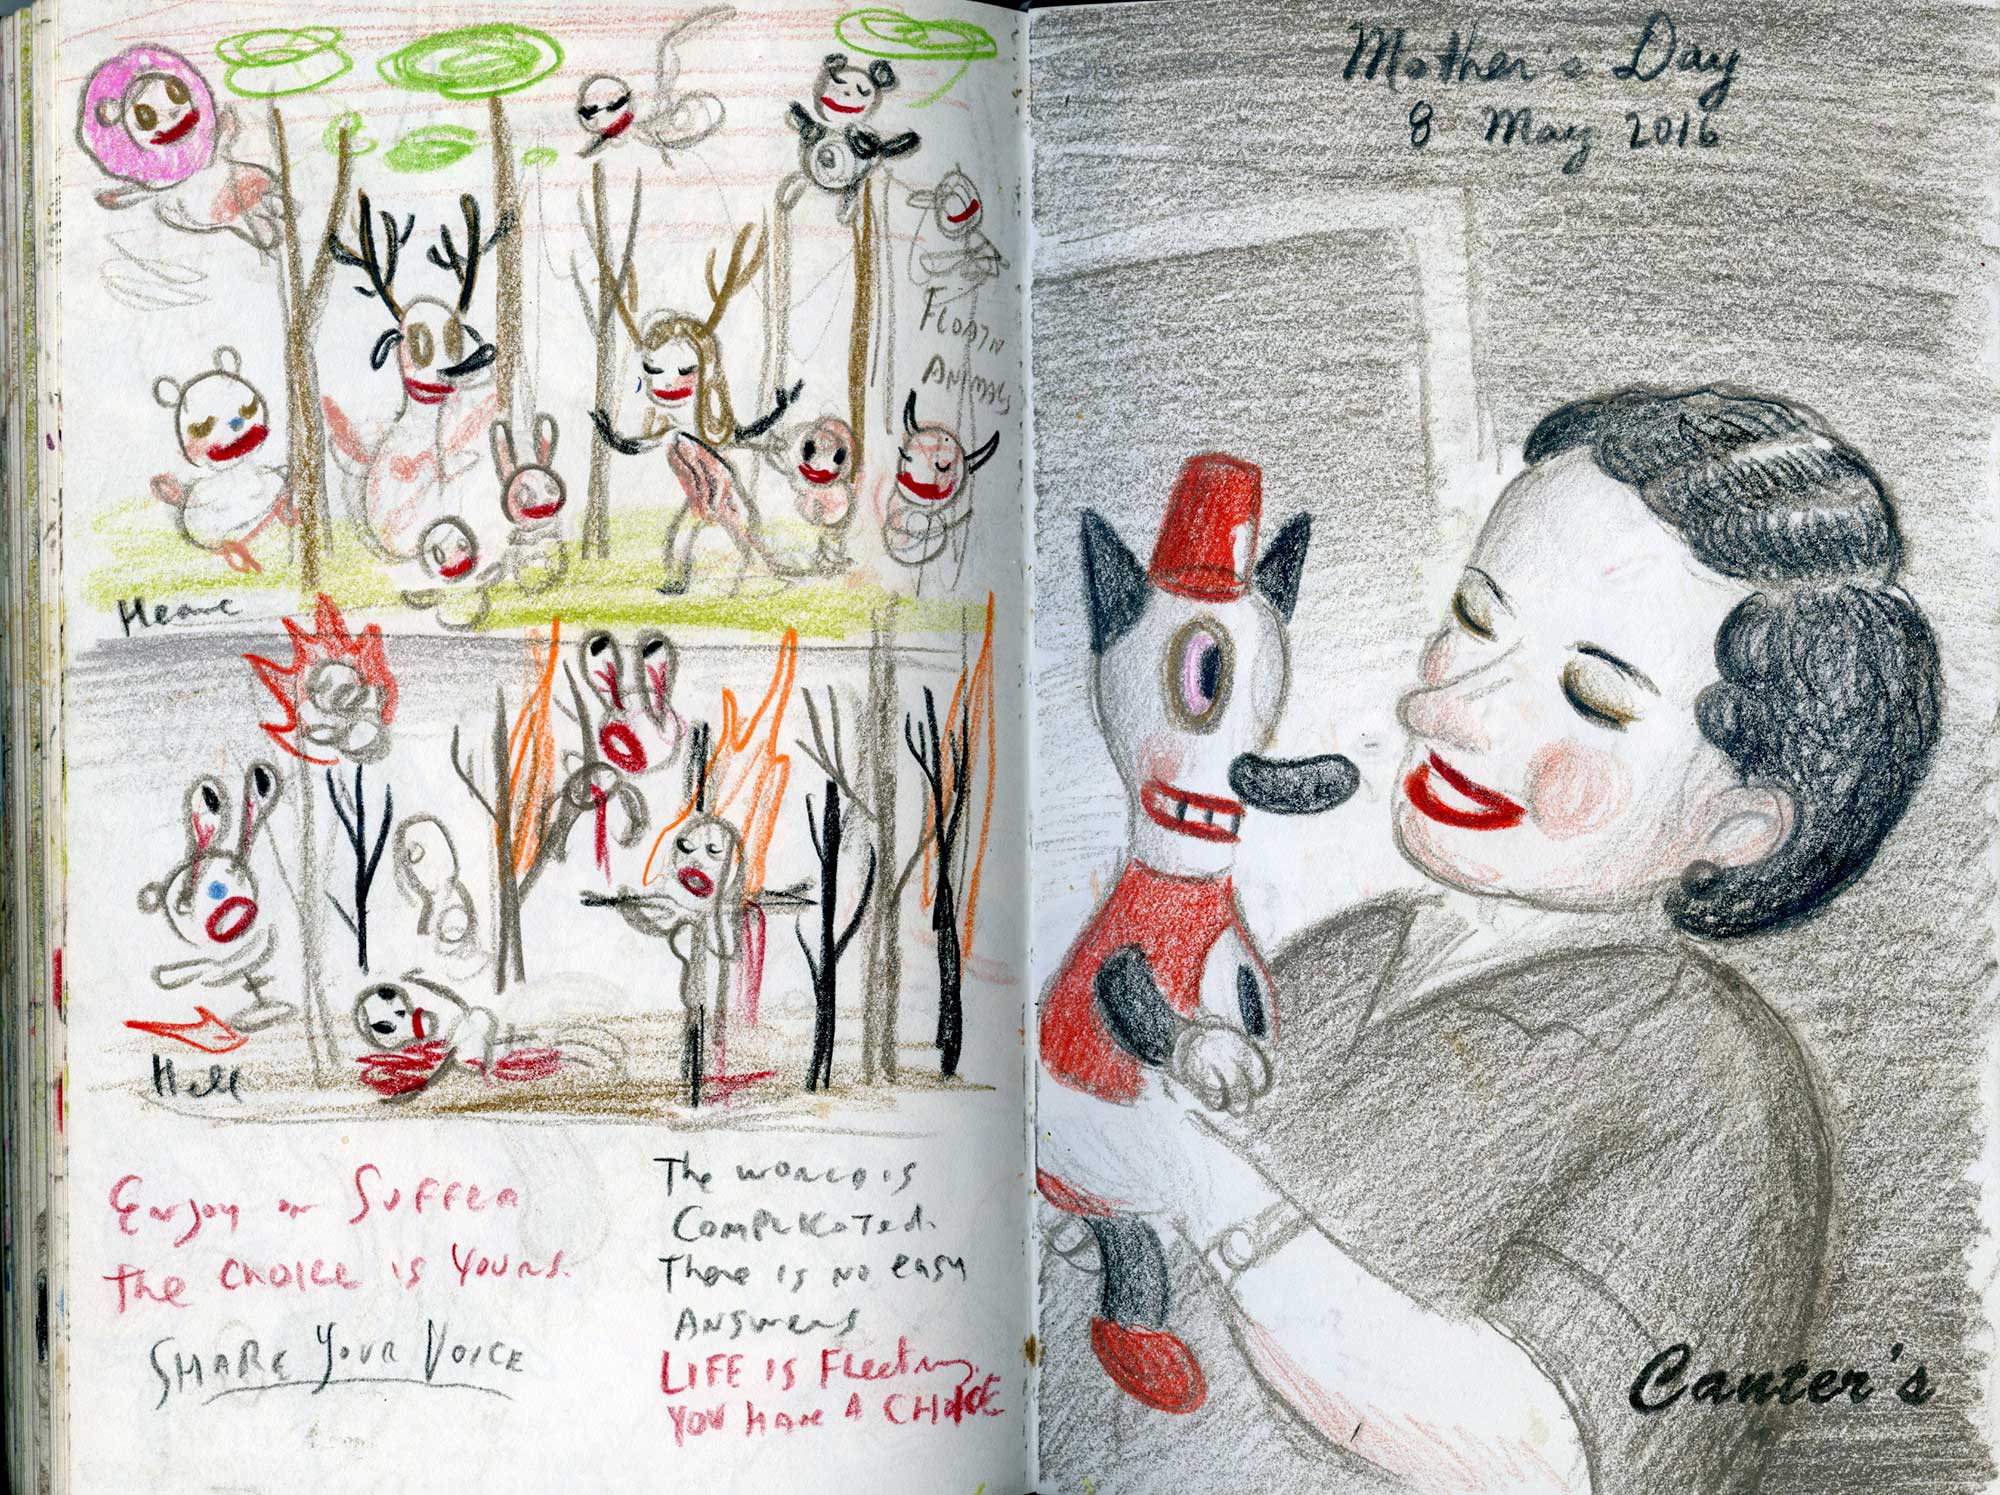 FLOATN
ANIMALS
Heave
Hell
Enjoy or SUFFER
the CHOICE is YOURS.
SHARE YOUR VOICE
The WORLD IS
COMPLICATED.
There is no easy
ANSWERS
LIFE IS Fleeting.
YOU HAVE A CHOICE
Mother's Day
8 May 2016
Canter's